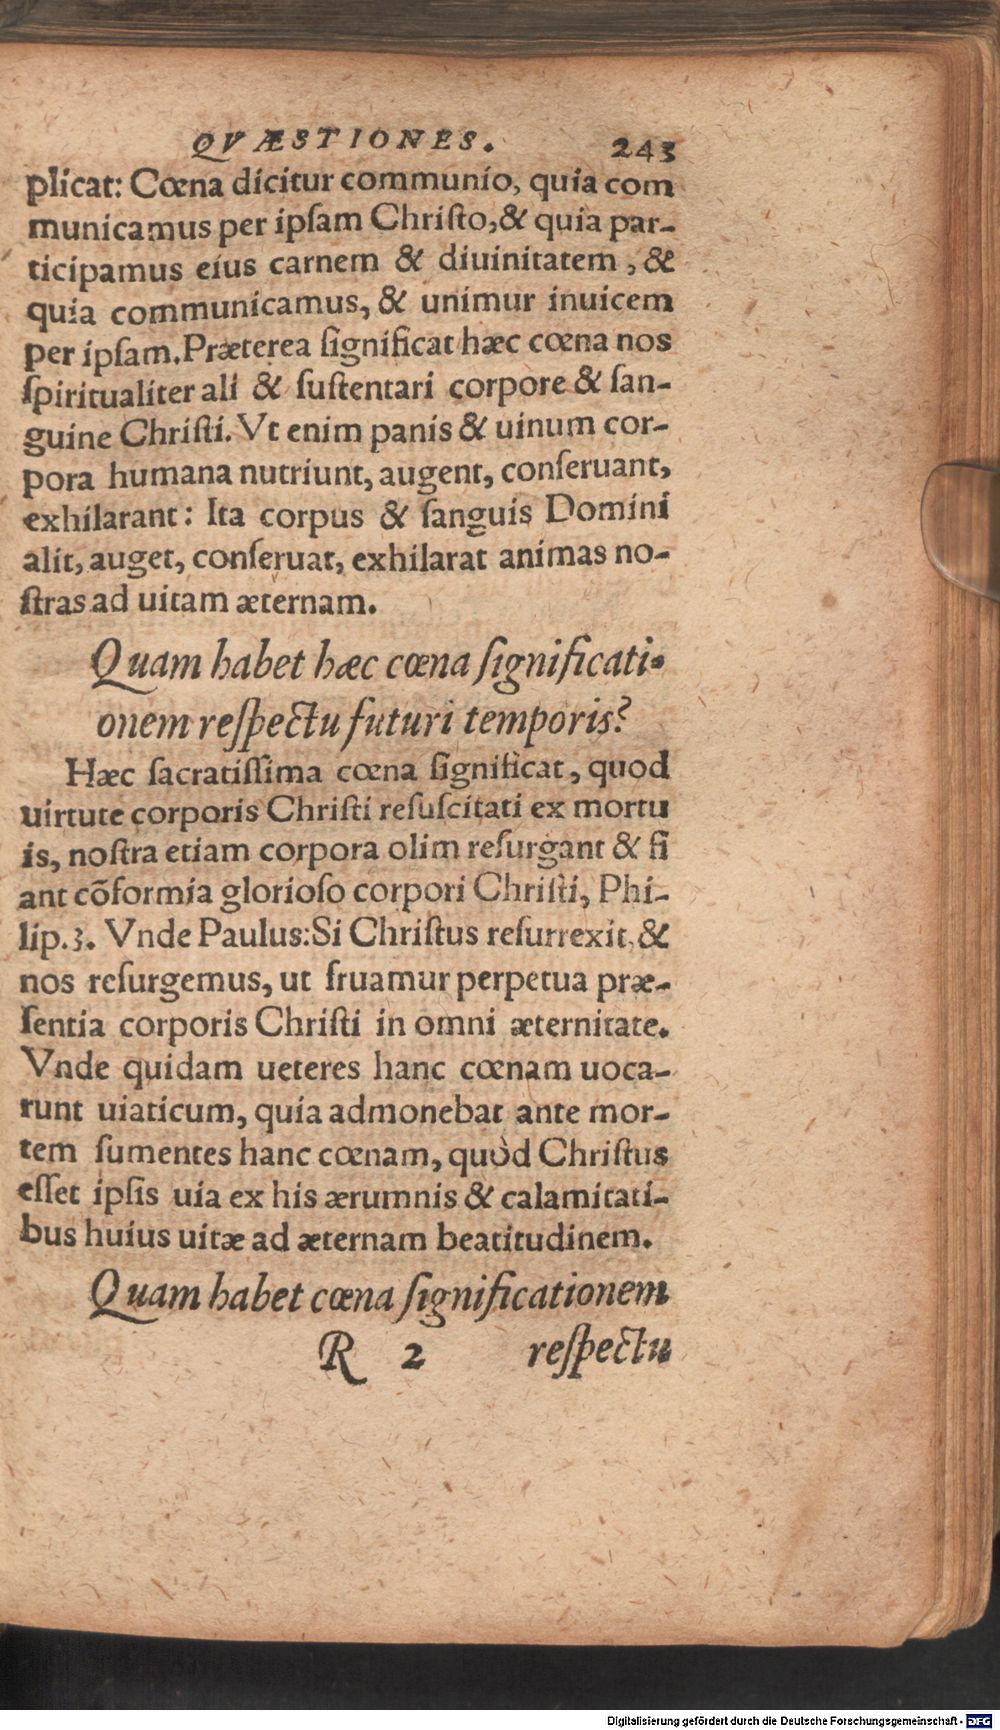 QVÆSTIONES. 243
plicat: Cœna dicitur communio, quia com
municamus per ipſam Chriſto, & quia par-
ticipamus eius carnem & diuinitatem, &
quia communicamus, & unimur inuicem
per ipſam. Præterea ſignificat hæc cœna nos
ſpiritualiter ali & ſuſtentari corpore & ſan-
guine Chriſti. Vt enim panis & uinum cor-
pora humana nutriunt, augent, conſeruant,
exhilarant: Ita corpus & ſanguis Domini
alit, auget, conſeruat, exhilarat animas no-
ſtras ad uitam æternam.
Quam habet hæc cœna ſignificati-
onem reſpectu futuri temporis?
Hæc ſacratiſſima cœna ſignificat, quod
uirtute corporis Chriſti reſuſcitati ex mortu
is, noſtra etiam corpora olim reſurgant & fi
ant cõformia glorioſo corpori Chriſti, Phi-
lip.3. Vnde Paulus: Si Chriſtus reſurrexit, &
nos reſurgemus, ut fruamur perpetua præ-
ſentia corporis Chriſti in omni æternitate.
Vnde quidam ueteres hanc cœnam uoca-
runt uiaticum, quia admonebat ante mor-
tem ſumentes hanc cœnam, quòd Chriſtus
eſſet ipſis uia ex his ærumnis & calamitati-
bus huius uitæ ad æternam beatitudinem.
Quam habet cœna ſignificationem
R 2 reſpectu
Digitalisierung gefördert durch die Deutsche Forschungsgemeinschaft - DFG